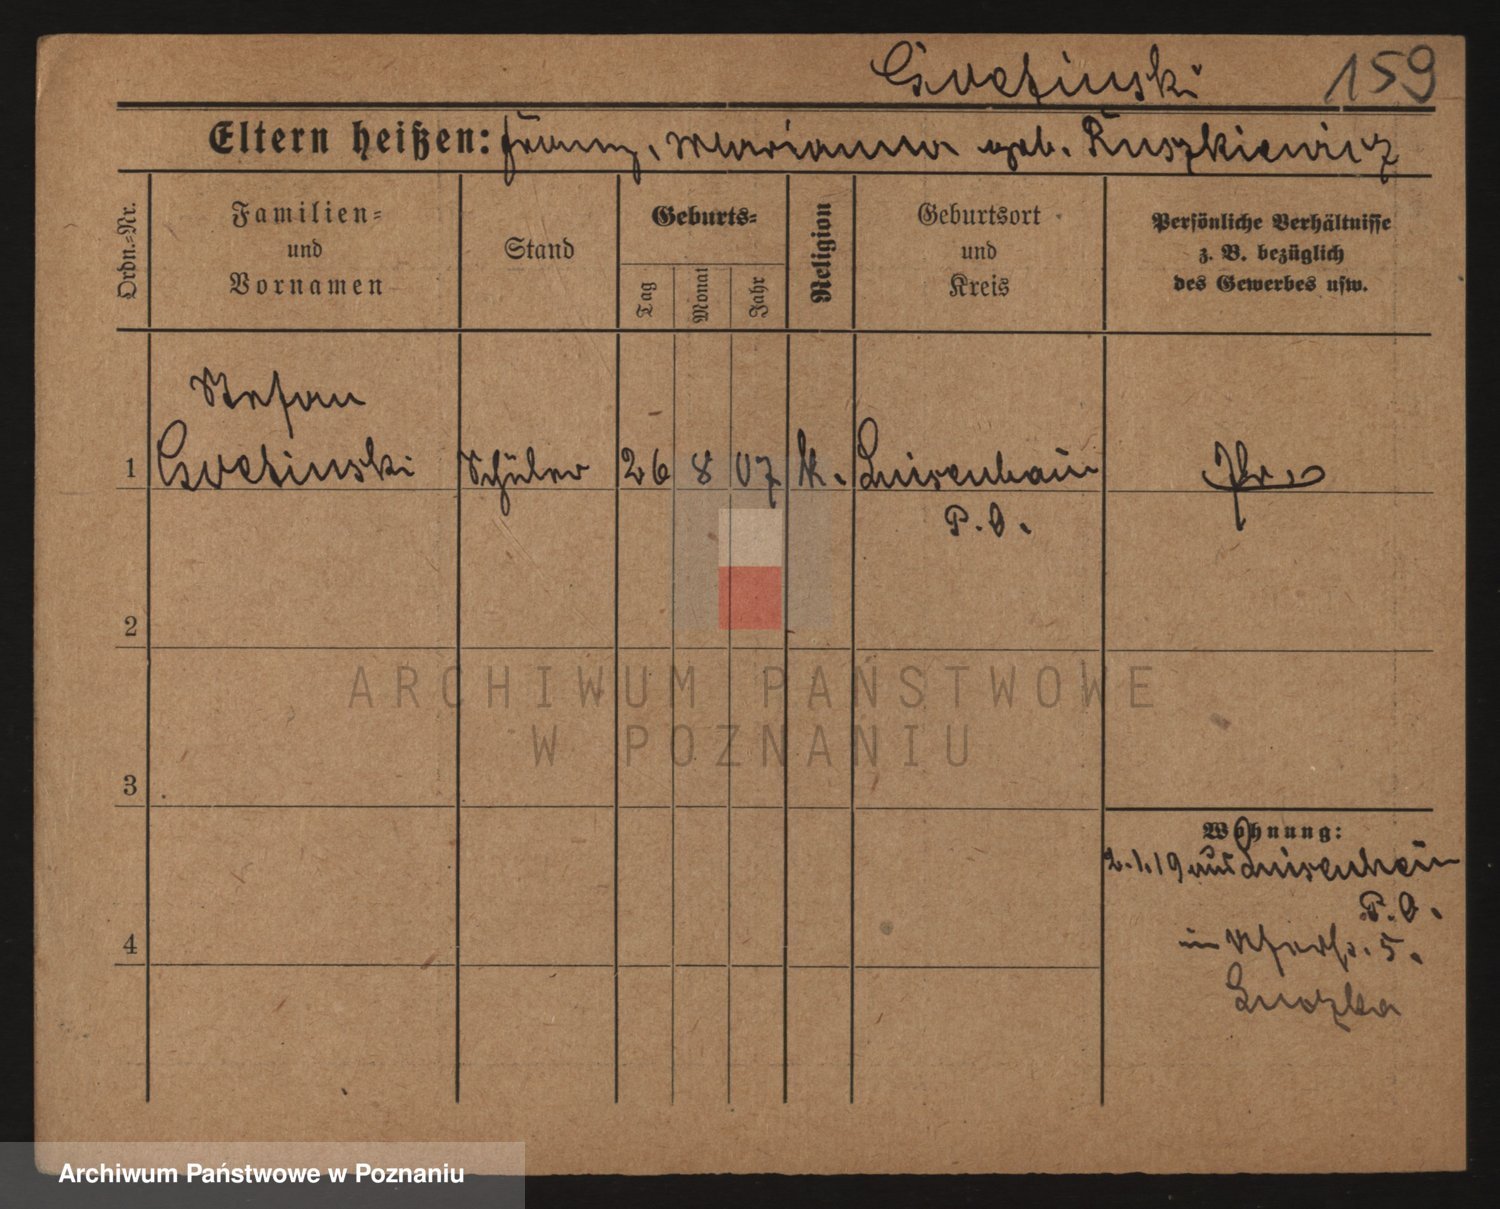 Gvetinski 159
Eltern heißen: Franz, Marianna geb. Ruszkiewicz
Ordn.-Nr.
Familien-
und
Vornamen
Stand
Geburts-
Tag
Monat
Jahr
Religion
Geburtsort
und
Kreis
Persönliche Verhältnisse
z. B. bezüglich
des Gewerbes usw.
Stefan
1 Gvetinski Schüler 26 8 07 k. Luisenhain Pr.
P. O.
2
3
4
Wohnung:
2.1.19 aus Luisenhain
P. O.
in 5.
ARCHIWUM PAŃSTWOWE
W POZNANIU
Archiwum Państwowe w Poznaniu